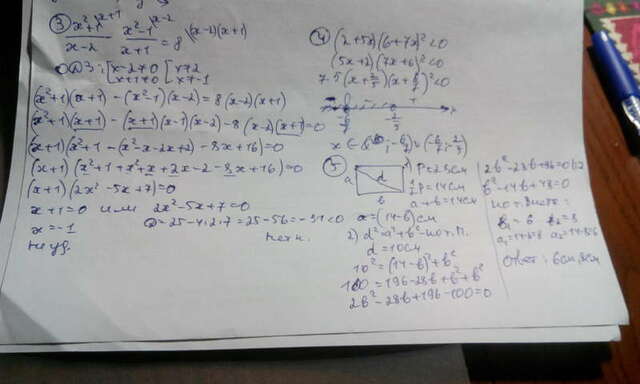 ③ x²+1 \x+1 x²-1 \x-2
x-2 - x+1 = 8 \(x-2)(x+1)
ОДЗ: [x-2≠0 [x≠2
x+1≠0 x≠-1
(x²+1)(x+1) - (x²-1)(x-2) = 8(x-2)(x+1)
(x²+1)(x+1) - (x+1)(x-1)(x-2) - 8(x-2)(x+1)=0
(x+1)(x²+1 - (x²-x-2x+2) - 8x+16)=0
(x+1)(x²+1-x²+x+2x-2-8x+16)=0
(x+1)(2x²-5x+7)=0
x+1=0 или 2x²-5x+7=0
x=-1 D=25-4·2·7=25-56=-31<0
④ (2+5x)(6+7x)²<0
(5x+2)(7x+6)²<0
7·5(x+2/5)(x+6/7)²<0
-6/7 -2/5
⑤ 1) P=28см
2P=14см
a+b=14см
d
a
b
a=(14-b)см
2) d²=a²+b²-по т.П.
d=10см
10²=(14-b)²+b²
100=196-28b+b²+b²
2b²-28b+196-100=0
2b²-28b+96=0 |:2
b²-14b+48=0
по т. Виета:
b₁=6 b₂=8
a₁=14-6=8 a₂=14-8=6
Ответ: 6см, 8см